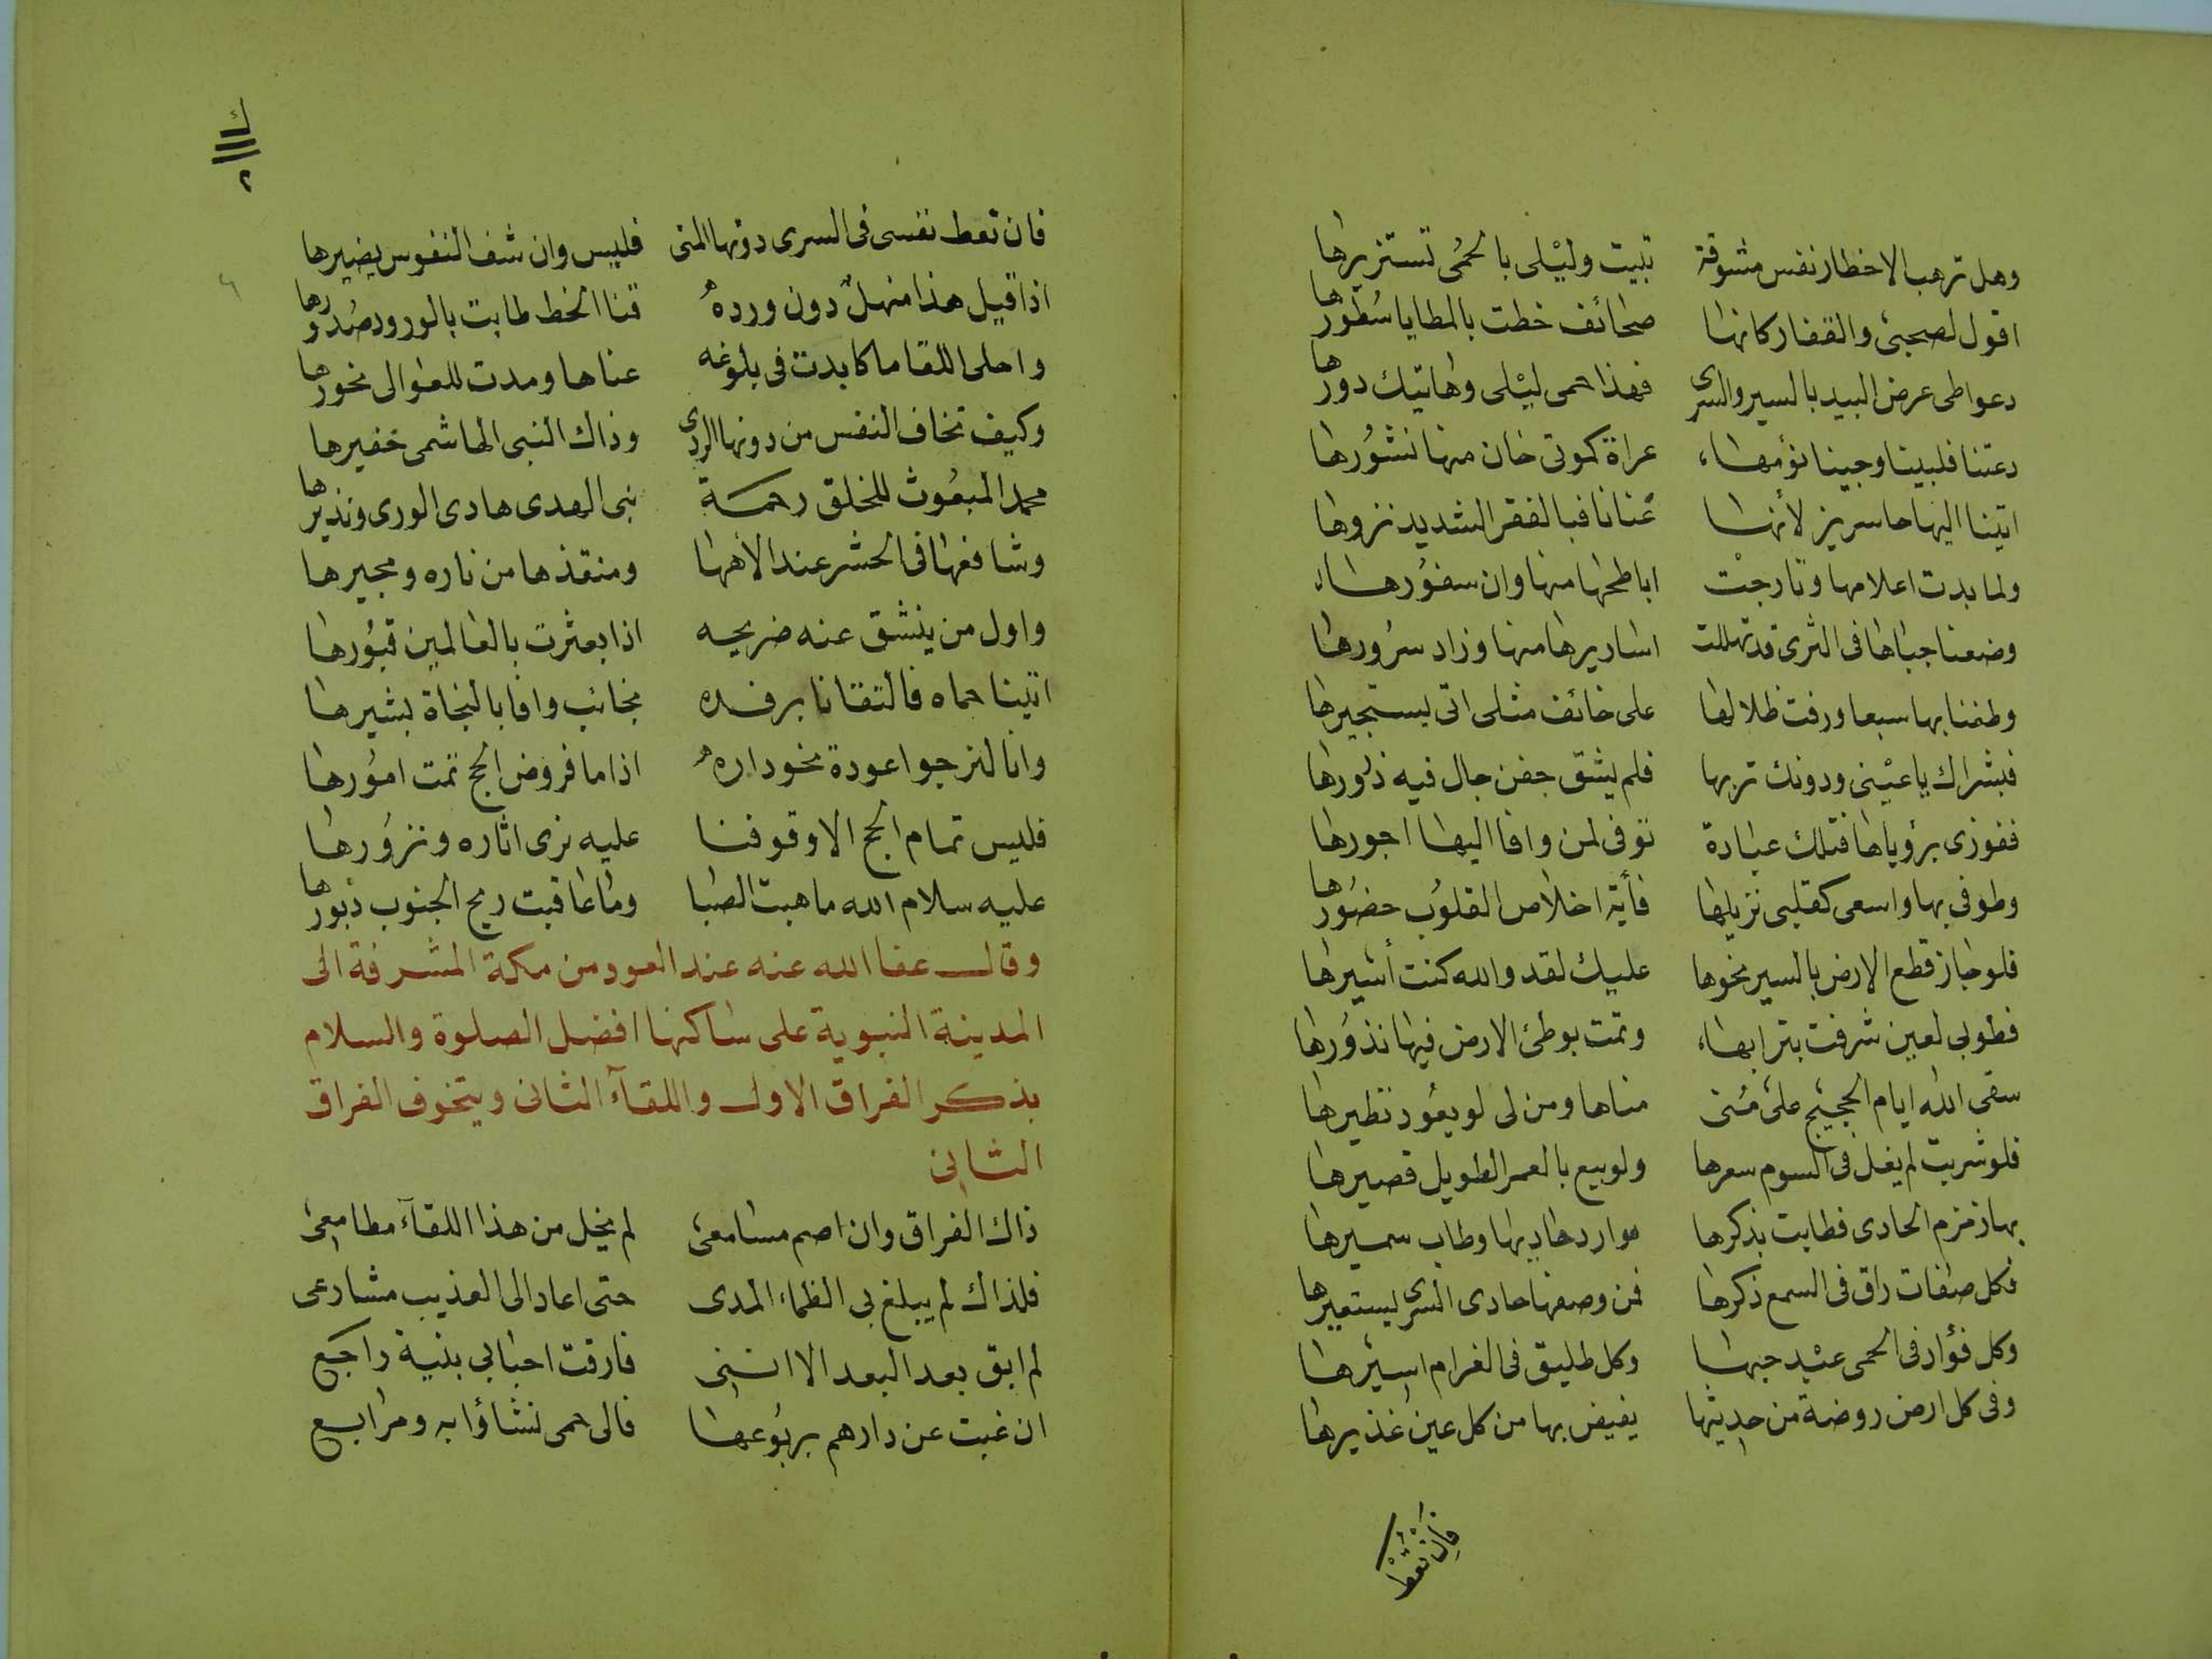 وهل ترهب الاخطار نفس مشوقة تبيت وليلى بالحمى تستزيرها
اقول لصحبى والقفار كانها صحائف خطت بالمطايا سطورها
دعوا طى عرض البيد بالسير والسرى فهذا حمى ليلى وهاتيك دورها
دعتنا فلبينا وجينا نؤمها عراة كموتى خان منها نشورها
اتينا اليها حاسرين لأنها غنانا فبالفقر الشديد نزورها
ولما بدت اعلامها وتارجت اباطحها منها وان سفورها
وضعنا جباها فى الثرى قد تهللت اساريرها منها وزاد سرورها
وطفنا بها سبعا ورفت ظلالها على خائف مثلى اتى يستجيرها
فبشراك يا عينى ودونك تربها فلم يشق جفن جال فيه ذرورها
ففوزى برؤياها فتلك عبادة توفى لمن وافا اليها اجورها
وطوفى بها واسعى كقلبى نزيلها فأية اخلاص القلوب حضورها
فلو جاز قطع الارض بالسير نحوها عليك لقد والله كنت أشيرها
فطوبى لعين شرفت بترابها وتمت بوطئ الارض فيها نذورها
سقى الله ايام الحجيج على منى مناها ومن لى لو يعود نظيرها
فلو شريت لم يغل فى السوم سعرها ولو بيع بالعمر الطويل قصيرها
بها زمزم الحادى فطابت بذكرها موارد حاديها وطاب سميرها
فكل صفات راق فى السمع ذكرها فمن وصفها حادى السرى يستعيرها
وكل فؤاد فى الحمى عبد حبها وكل طليق فى الغرام اسيرها
وفى كل ارض روضة من حديثها يفيض بها من كل عين غديرها
فان تعط
فان تعط نفسى فى السرى دونها المنى فليس وان شف النفوس يضيرها
اذا قيل هذا منهل دون ورده قنا الخط طابت بالورود صدورها
واحلى اللقا ما كابدت فى بلوغه عناها ومدت للعوالى نحورها
وكيف تخاف النفس من دونها الردى وذاك النبى الهاشمى خفيرها
محمد المبعوث للخلق رحمة نبى الهدى هادى الورى ونذيرها
وشافعها فى الحشر عند الاهها ومنقذها من ناره ومجيرها
واول من ينشق عنه ضريحه اذا بعثرت بالعالمين قبورها
اتينا حماه فالتقانا برفده نجائب وافا بالنجاة بشيرها
وانا لنرجوا عودة نحو داره اذا ما فروض الحج تمت امورها
فليس تمام الحج الا وقوفنا عليه نرى اثاره ونزورها
عليه سلام الله ما هبت الصبا وما عاقبت ريح الجنوب دبورها
وقال عفا الله عنه عند العود من مكة المشرفة الى
المدينة النبوية على ساكنها افضل الصلوة والسلام
بذكر الفراق الاول واللقآء الثانى ويتخوف الفراق
الثانى
ذاك الفراق وان اصم مسامعى لم يخل من هذا اللقآء مطامعى
فلذاك لم يبلغ بى الظماء المدى حتى اعاد الى العذيب مشارعى
لم ابق بعد البعد الا اننى فارقت احبابى بنية راجع
ان غبت عن دارهم بربوعها فالى حمى نشاؤا به ومرابع